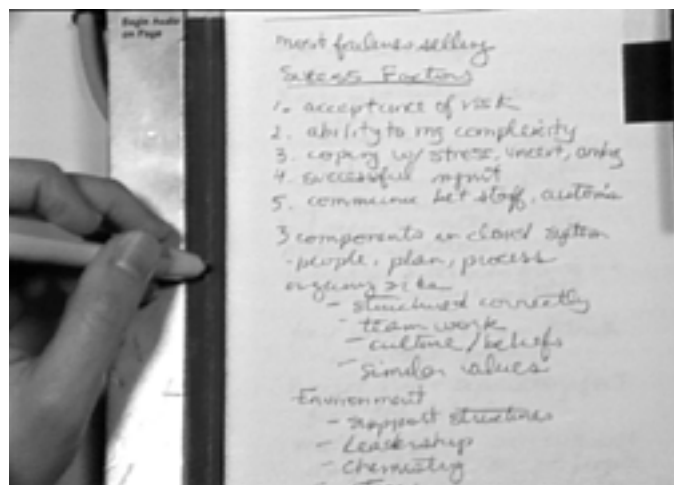 Begin Audio
on Page
most failures selling
Success Factors
1. acceptance of risk
2. ability to mg complexity
3. coping w/ stress, uncert, ambig
4. successful mgmt
5. communic bet staff, customs
3 components in closed system
- people, plan, process
- structured correctly
- team work
- culture / beliefs
- similar values
Environment
- support structures
- Leadership
- Chemistry